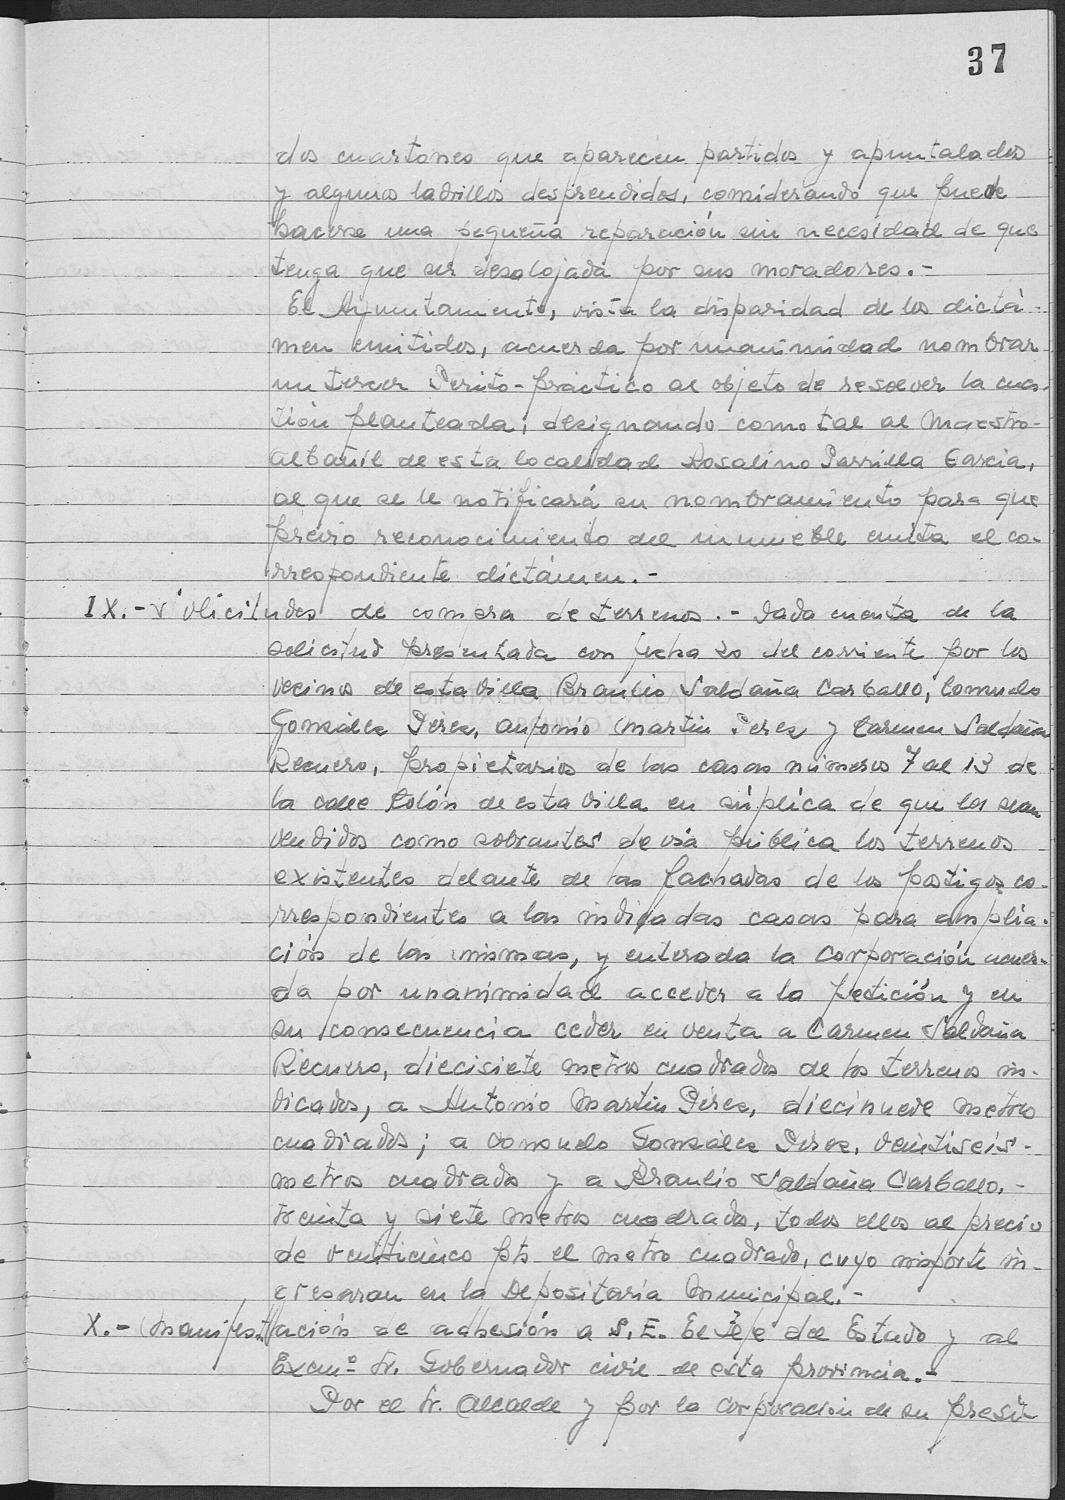 37
dos cuartones que aparecen partidos y apuntalados
y algunos ladrillos desprendidos, considerando que puede
hacerse una pequeña reparación sin necesidad de que
tenga que ser desalojada por sus moradores.-
El Ayuntamiento, vista la disparidad de los dictá-
men emitidos, acuerda por unanimidad nombrar
un tercer Perito-práctico al objeto de resolver la cues-
tión planteada; designando como tal al Maestro-
albañil de esta localidad Rosalino Parrilla García,
al que se le notificará su nombramiento para que
previo reconocimiento del inmueble emita el co-
rrespondiente dictámen.-
IX.- Solicitudes de compra de terrenos.- Dada cuenta de la
solicitud presentada con fecha 20 del corriente por los
vecinos de esta villa Braulio Saldaña Carballo, Consuelo
González Pérez, Antonio Martin Perez y Carmen Saldaña
Recuero, propietarios de las casas números 7 al 13 de
la calle Colón de esta villa en súplica de que les sean
vendidos como sobrantes de vía pública los terrenos
existentes delante de las fachadas de los postigos co-
rrespondientes a las indicadas casas para amplia-
ción de las mismas, y enterada la Corporación acuer-
da por unanimidad acceder a la petición y en
su consecuencia ceder en venta a Carmen Saldaña
Recuero, diecisiete metros cuadrados de los terrenos in-
dicados, a Antonio Martin Pérez, diecinueve metros
cuadrados; a Consuelo González Pérez, veintiseis-
metros cuadrados y a Braulio Saldaña Carballo,-
treinta y siete metros cuadrados, todos ellos al precio
de venticinco pts el metro cuadrado, cuyo importe in-
gresaran en la Depositaría Municipal.-
X.- Manifestación de adhesión a S. E. El Jefe del Estado y al
Excmº Sr. Gobernador civil de esta provincia.-
Por el Sr. Alcalde y por la Corporación de su presi-
DIPUTACIÓN DE SEVILLA
ARCHIVO